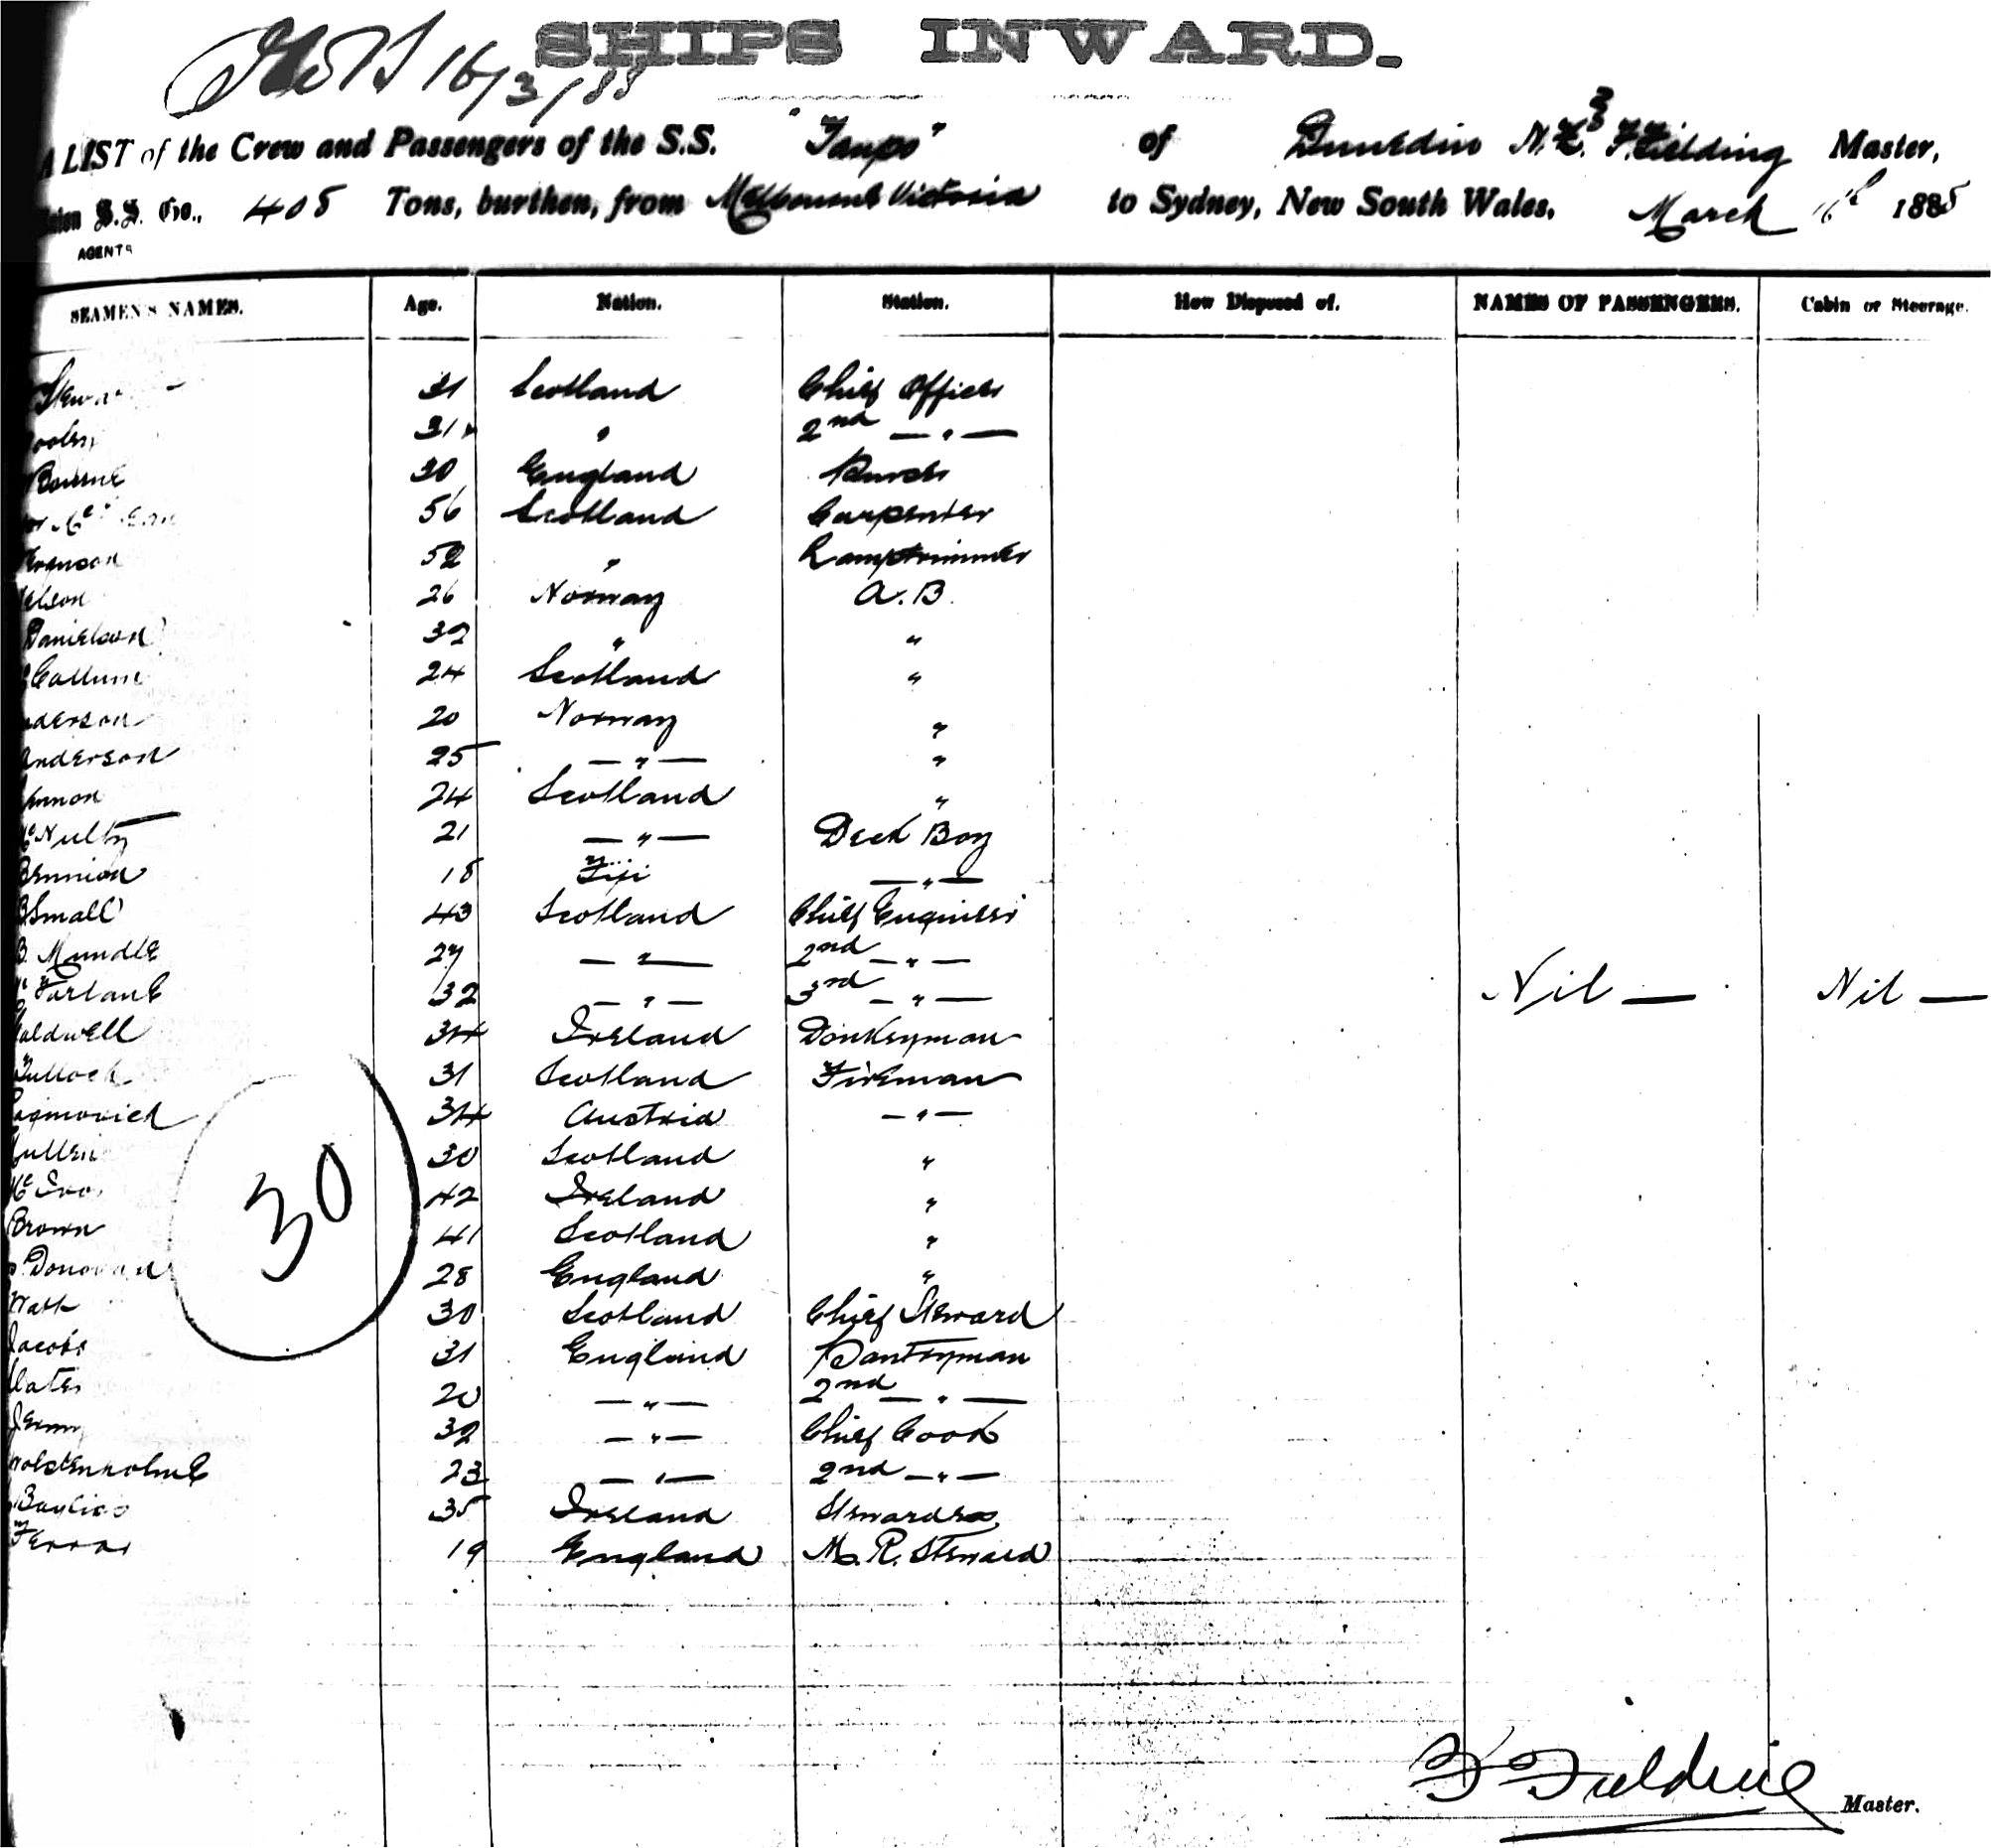 SHIPS INWARD.
16/3/85
A LIST of the Crew and Passengers of the S.S. "Taupo" of Dunedin N.Z. F. Fielding Master,
Union S.S. Co., 405 Tons, burthen, from Melbourne Victoria to Sydney, New South Wales, March 16th 1885
AGENTS
SEAMEN'S NAMES. Age. Nation. Station. How Disposed of. NAMES OF PASSENGERS. Cabin or Steerage.
31 Scotland Chief Officer
31 " 2nd — " —
Bourne 30 England Purser
56 Scotland Carpenter
52 " Lamptrimmer
elson 26 Norway A.B.
Danielson 32 " "
Callum 24 Scotland "
nderson 20 Norway "
Anderson 25 — " — "
24 Scotland "
McNulty 21 — " — Deck Boy
Bennion 18 Fiji — " —
Small 43 Scotland Chief Engineer
B. Mundle 27 — " — 2nd — " —
McFarlane 32 — " — 3rd — " — Nil — Nil —
Caldwell 34 Ireland Donkeyman
Tulloch 31 Scotland Fireman
34 Austria — " —
Cullen 30 Scotland "
42 Ireland "
Brown 41 Scotland "
Donovan 28 England "
Watt 30 Scotland Chief Steward
Jacobs 31 England Pantryman
20 — " — 2nd — " —
32 — " — Chief Cook
Wolstenholme 23 — " — 2nd — " —
35 Ireland Stewardess
19 England M. R. Steward
30
F Fielding
Master.